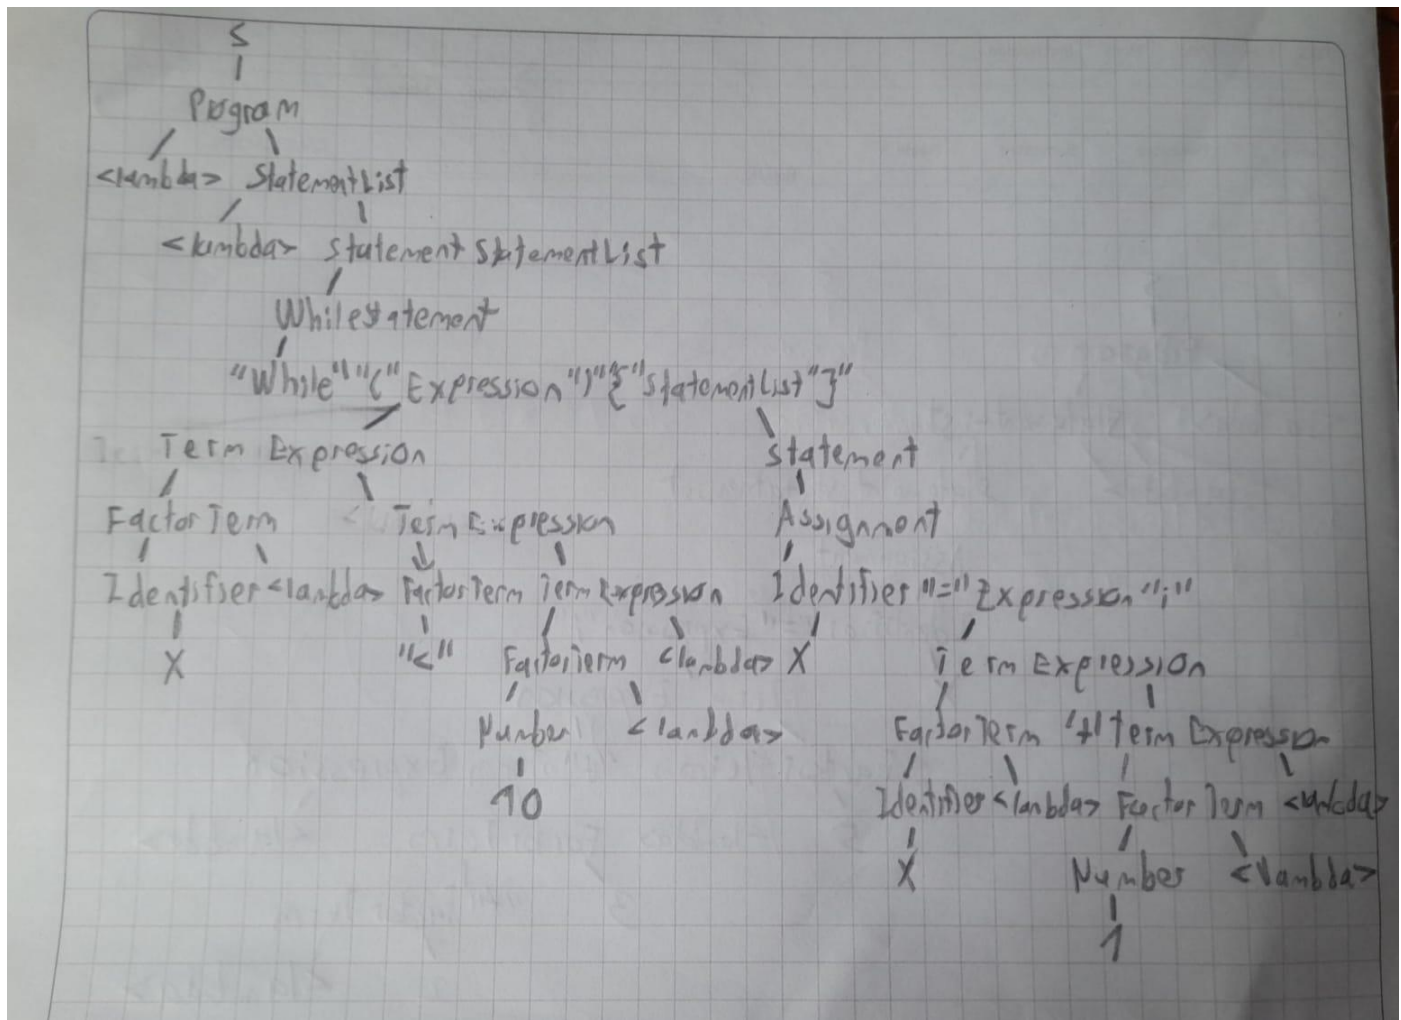 S
Program
<lambda> StatementList
<lambda> Statement StatementList
Whilestatement
"While" "(" Expression ")" "{" StatementList "}"
Term Expression Statement
Factor Term Term Expression Assignment
Identifier <lambda> FactorTerm Term Expression Identifier "=" Expression ";"
X "<" FactorTerm <lambda> X Term Expression
Number <lambda> FactorTerm "+" Term Expression
10 Identifier <lambda> Factor Term <lambda>
X Number <lambda>
1